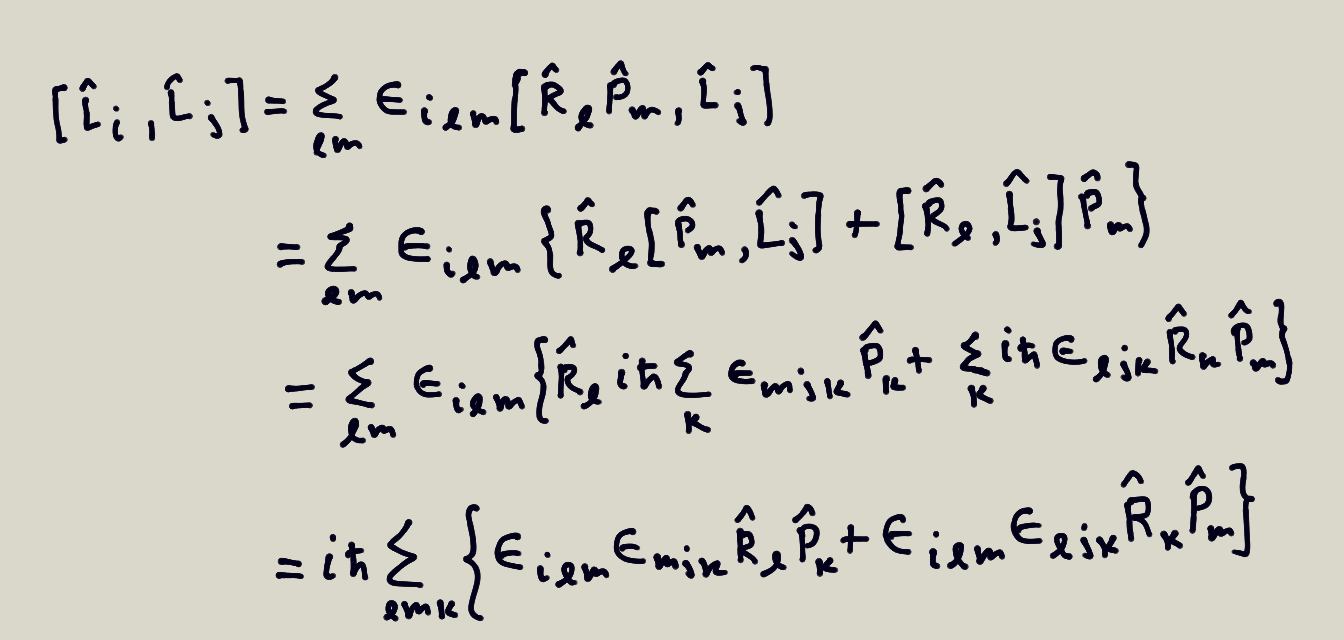 [L̂_i , L̂_j] = Σ_{ℓm} ϵ_{iℓm} [R̂_ℓ P̂_m , L̂_j]
= Σ_{ℓm} ϵ_{iℓm} { R̂_ℓ [P̂_m , L̂_j] + [R̂_ℓ , L̂_j] P̂_m }
= Σ_{ℓm} ϵ_{iℓm} { R̂_ℓ iħ Σ_k ϵ_{mjk} P̂_k + Σ_k iħ ϵ_{ℓjk} R̂_k P̂_m }
= iħ Σ_{ℓmk} { ϵ_{iℓm} ϵ_{mjk} R̂_ℓ P̂_k + ϵ_{iℓm} ϵ_{ℓjk} R̂_k P̂_m }